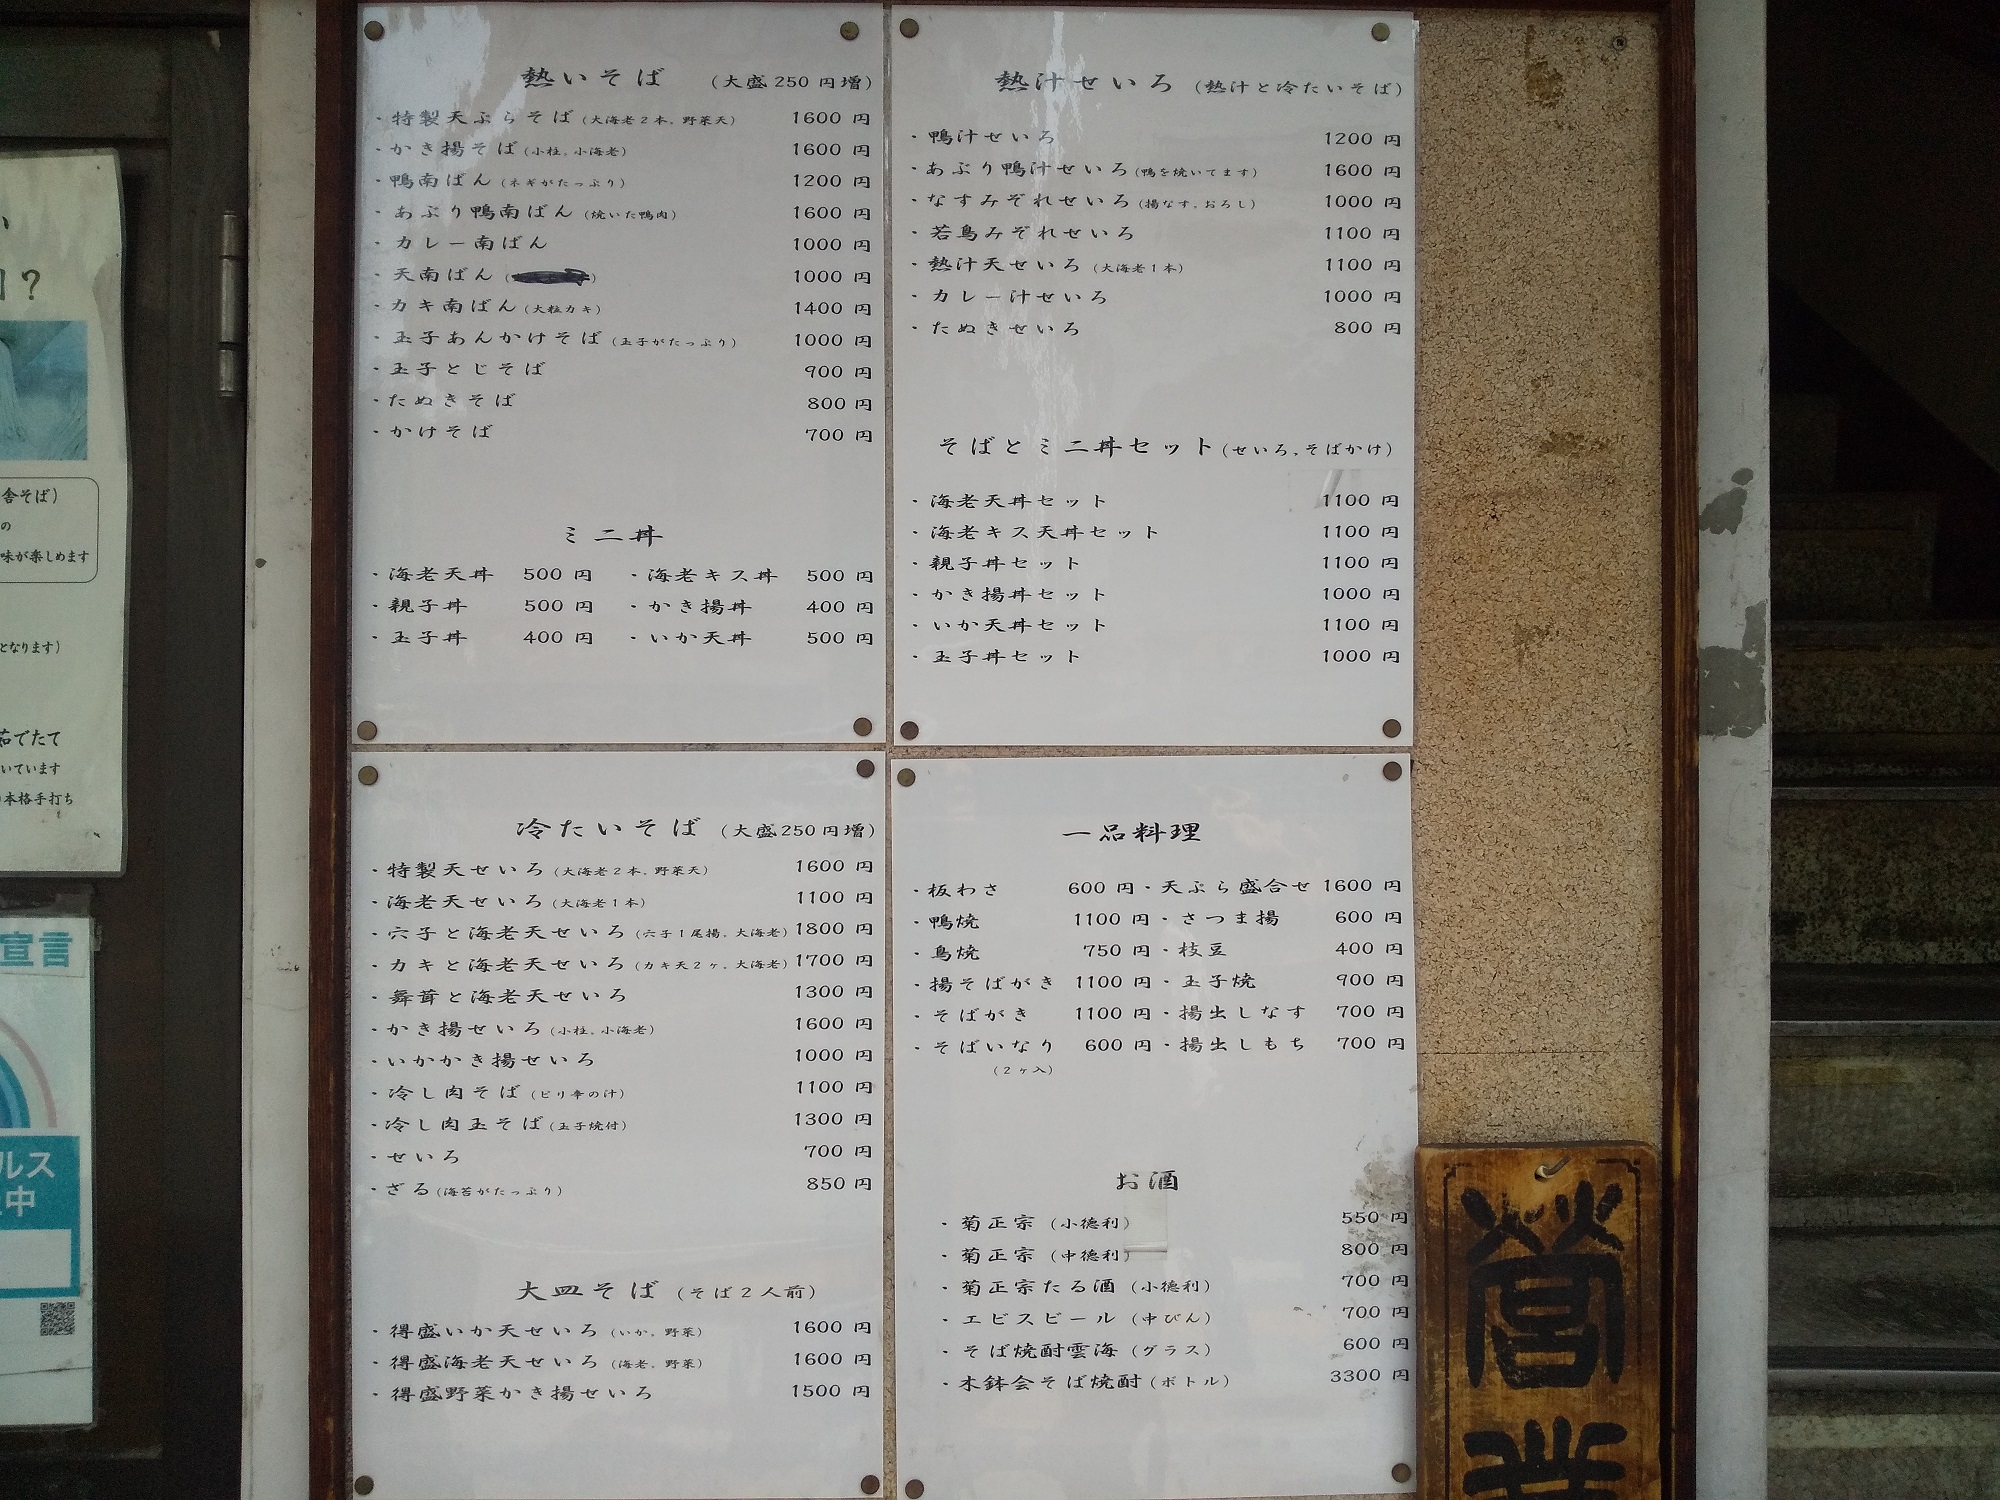 熱いそば (大盛250円増)
・特製天ぷらそば(大海老2本,野菜天) 1600円
・かき揚そば(小柱,小海老) 1600円
・鴨南ばん(ネギがたっぷり) 1200円
・あぶり鴨南ばん(焼いた鴨肉) 1600円
・カレー南ばん 1000円
・天南ばん( ) 1000円
・カキ南ばん(大粒カキ) 1400円
・玉子あんかけそば(玉子がたっぷり) 1000円
・玉子とじそば 900円
・たぬきそば 800円
・かけそば 700円
ミニ丼
・海老天丼 500円 ・海老キス丼 500円
・親子丼 500円 ・かき揚丼 400円
・玉子丼 400円 ・いか天丼 500円
熱汁せいろ (熱汁と冷たいそば)
・鴨汁せいろ 1200円
・あぶり鴨汁せいろ(鴨を焼いてます) 1600円
・なすみぞれせいろ(揚なす,おろし) 1000円
・若鳥みぞれせいろ 1100円
・熱汁天せいろ(大海老1本) 1100円
・カレー汁せいろ 1000円
・たぬきせいろ 800円
そばとミニ丼セット(せいろ,そばかけ)
・海老天丼セット 1100円
・海老キス天丼セット 1100円
・親子丼セット 1100円
・かき揚丼セット 1000円
・いか天丼セット 1100円
・玉子丼セット 1000円
冷たいそば (大盛250円増)
・特製天せいろ(大海老2本,野菜天) 1600円
・海老天せいろ(大海老1本) 1100円
・穴子と海老天せいろ(穴子1尾揚,大海老) 1800円
・カキと海老天せいろ(カキ天2ヶ,大海老) 1700円
・舞茸と海老天せいろ 1300円
・かき揚せいろ(小柱,小海老) 1600円
・いかかき揚せいろ 1000円
・冷し肉そば(ピリ辛の汁) 1100円
・冷し肉玉そば(玉子焼付) 1300円
・せいろ 700円
・ざる(海苔がたっぷり) 850円
大皿そば (そば2人前)
・得盛いか天せいろ(いか,野菜) 1600円
・得盛海老天せいろ(海老,野菜) 1600円
・得盛野菜かき揚せいろ 1500円
一品料理
・板わさ 600円・天ぷら盛合せ 1600円
・鴨焼 1100円・さつま揚 600円
・鳥焼 750円・枝豆 400円
・揚そばがき 1100円・玉子焼 900円
・そばがき 1100円・揚出しなす 700円
・そばいなり 600円・揚出しもち 700円
(2ヶ入)
お酒
・菊正宗(小徳利) 550円
・菊正宗(中徳利) 800円
・菊正宗たる酒(小徳利) 700円
・エビスビール(中びん) 700円
・そば焼酎雲海(グラス) 600円
・木鉢会そば焼酎(ボトル) 3300円
営業
?
舎そば)
の
味が楽しめます
となります)
茹でたて
いています
本格手打ち
宣言
ルス
中